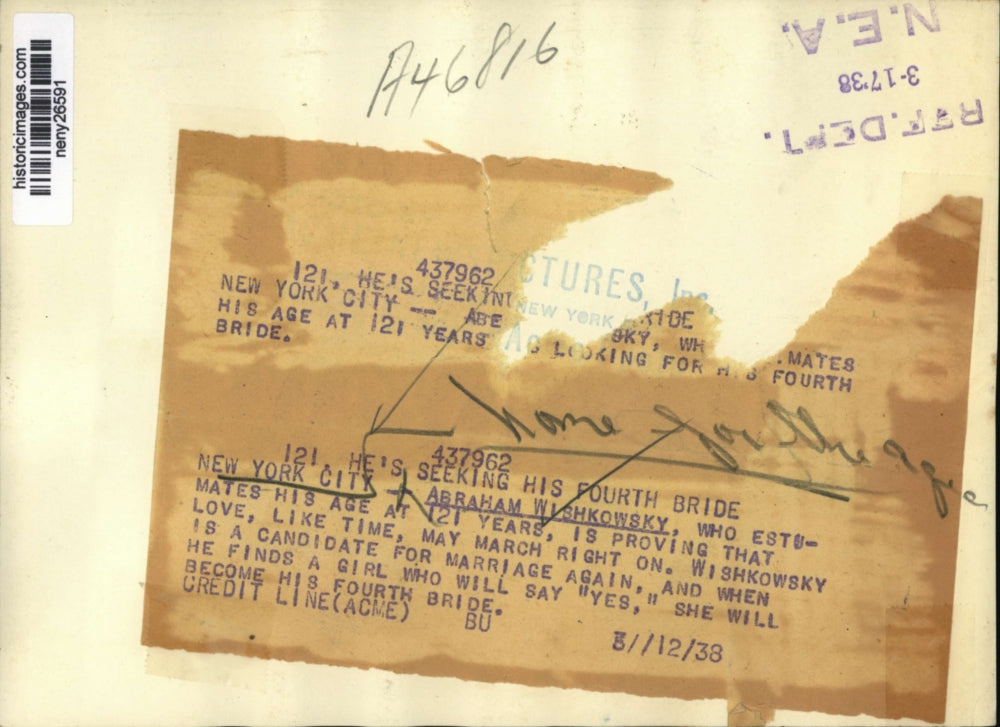 historicimages.com
neny26591
A46816
N.E.A.
3-17'38
REF. DEPT.
CTURES, Inc.
NEW YORK
437962
121, HE'S SEEKIN BRIDE
NEW YORK CITY -- ABE SKY, WH MATES
HIS AGE AT 121 YEARS LOOKING FOR HIS FOURTH
BRIDE.
437962
121, HE'S SEEKING HIS FOURTH BRIDE
NEW YORK CITY -- ABRAHAM WISHKOWSKY, WHO ESTU-
MATES HIS AGE AT 121 YEARS, IS PROVING THAT
LOVE, LIKE TIME, MAY MARCH RIGHT ON. WISHKOWSKY
IS A CANDIDATE FOR MARRIAGE AGAIN, AND WHEN
HE FINDS A GIRL WHO WILL SAY "YES," SHE WILL
BECOME HIS FOURTH BRIDE.
CREDIT LINE(ACME) BU 3//12/38